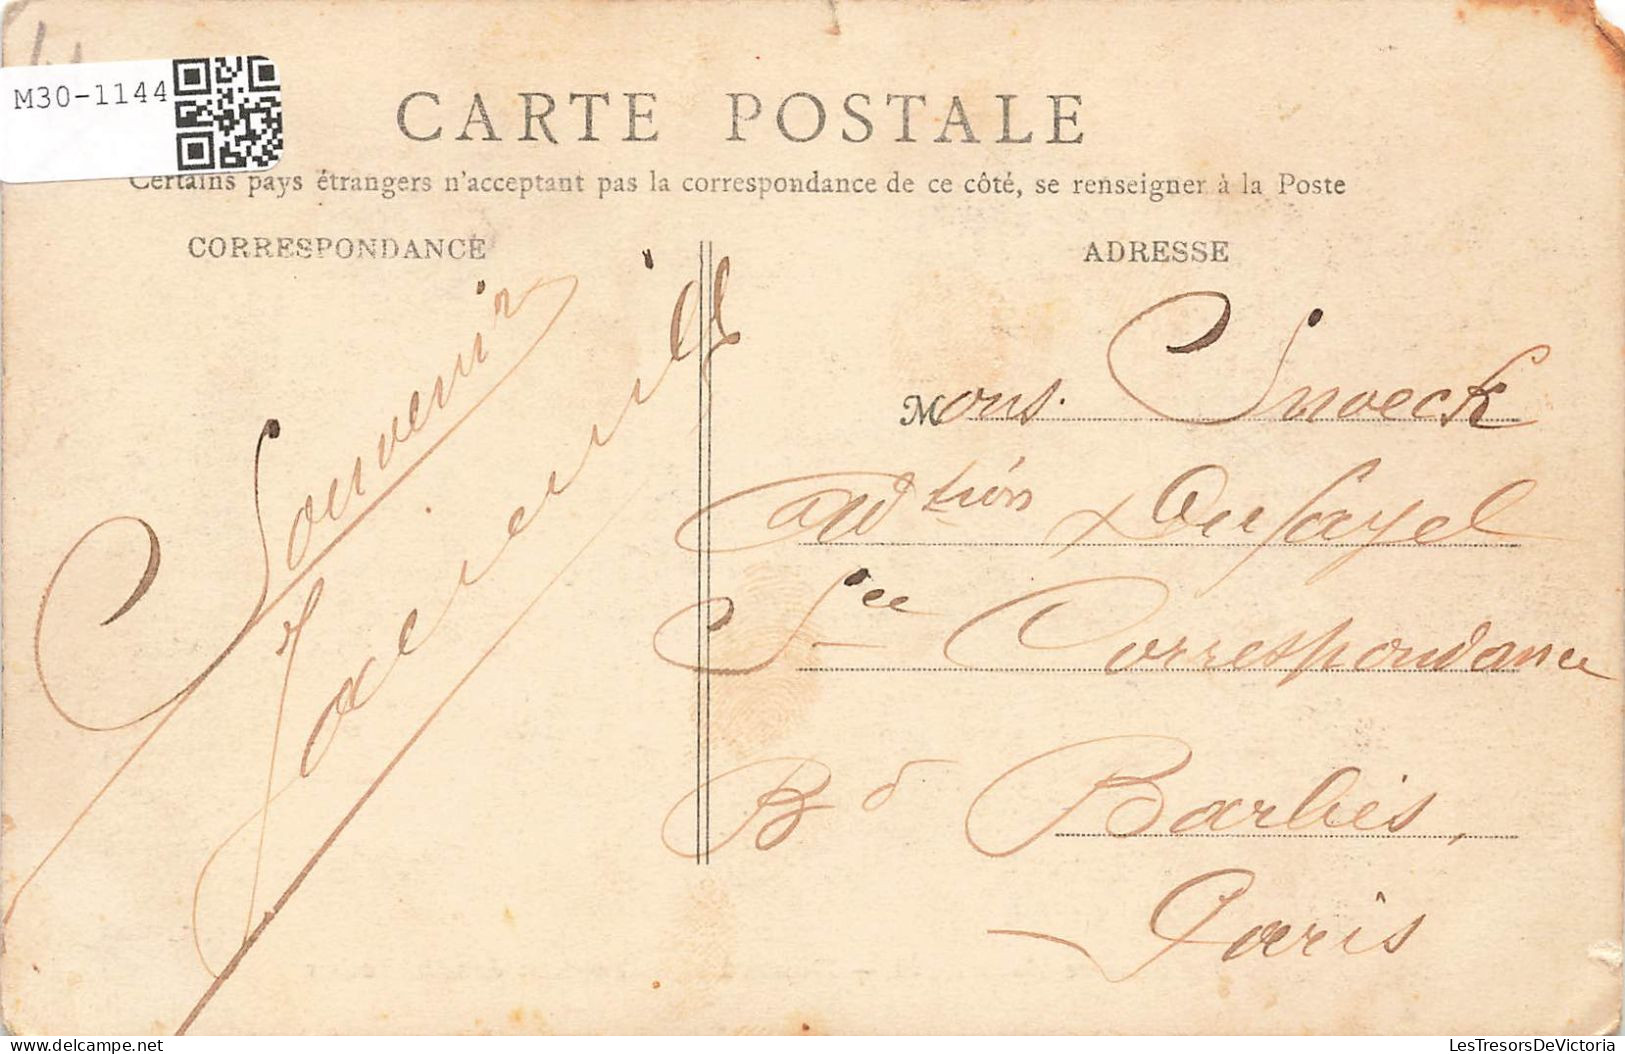 M30-1144
CARTE POSTALE
Certains pays étrangers n'acceptant pas la correspondance de ce côté, se renseigner à la Poste
CORRESPONDANCE
Souvenir
ADRESSE
Mons. Snoeck
Adtion Dufayel
Sce Correspondance
Bd Barbès,
Paris
delcampe.net
LesTresorsDeVictoria